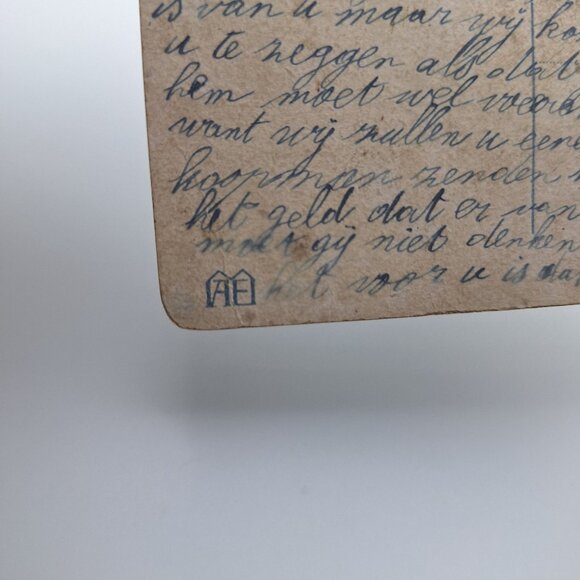 is van u maar wij ko
u te zeggen als dat
hem moet wel voor
want wij zullen u eene
koorman zenden
het geld dat er van
moet gij niet denken
het voor u is dan
AE